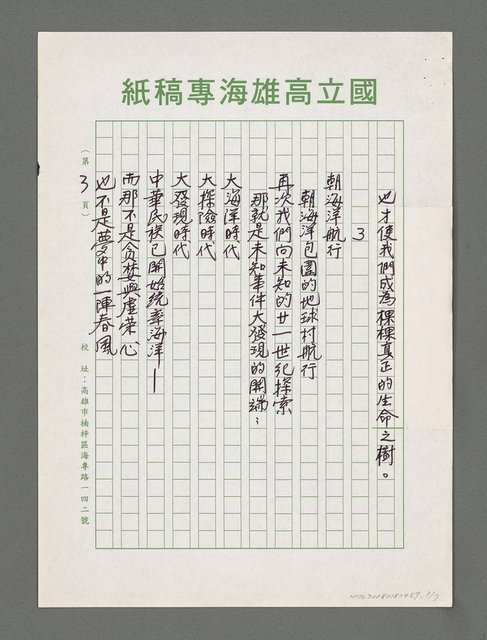 國立高雄海專稿紙
也才使我們成為棵棵真正的生命之樹。
3
朝海洋航行
朝海洋包圍的地球村航行
再次我們向未知的廿一世紀探索
那就是未知事件大發現的開端：
大海洋時代
大探險時代
大發現時代
中華民族已開始統率海洋—
而那不是貪婪與虛榮心
也不是夢中的一陣春風
（第3頁）
校 址：高雄市楠梓區海專路一四二號
NMTL20080182459.3/7